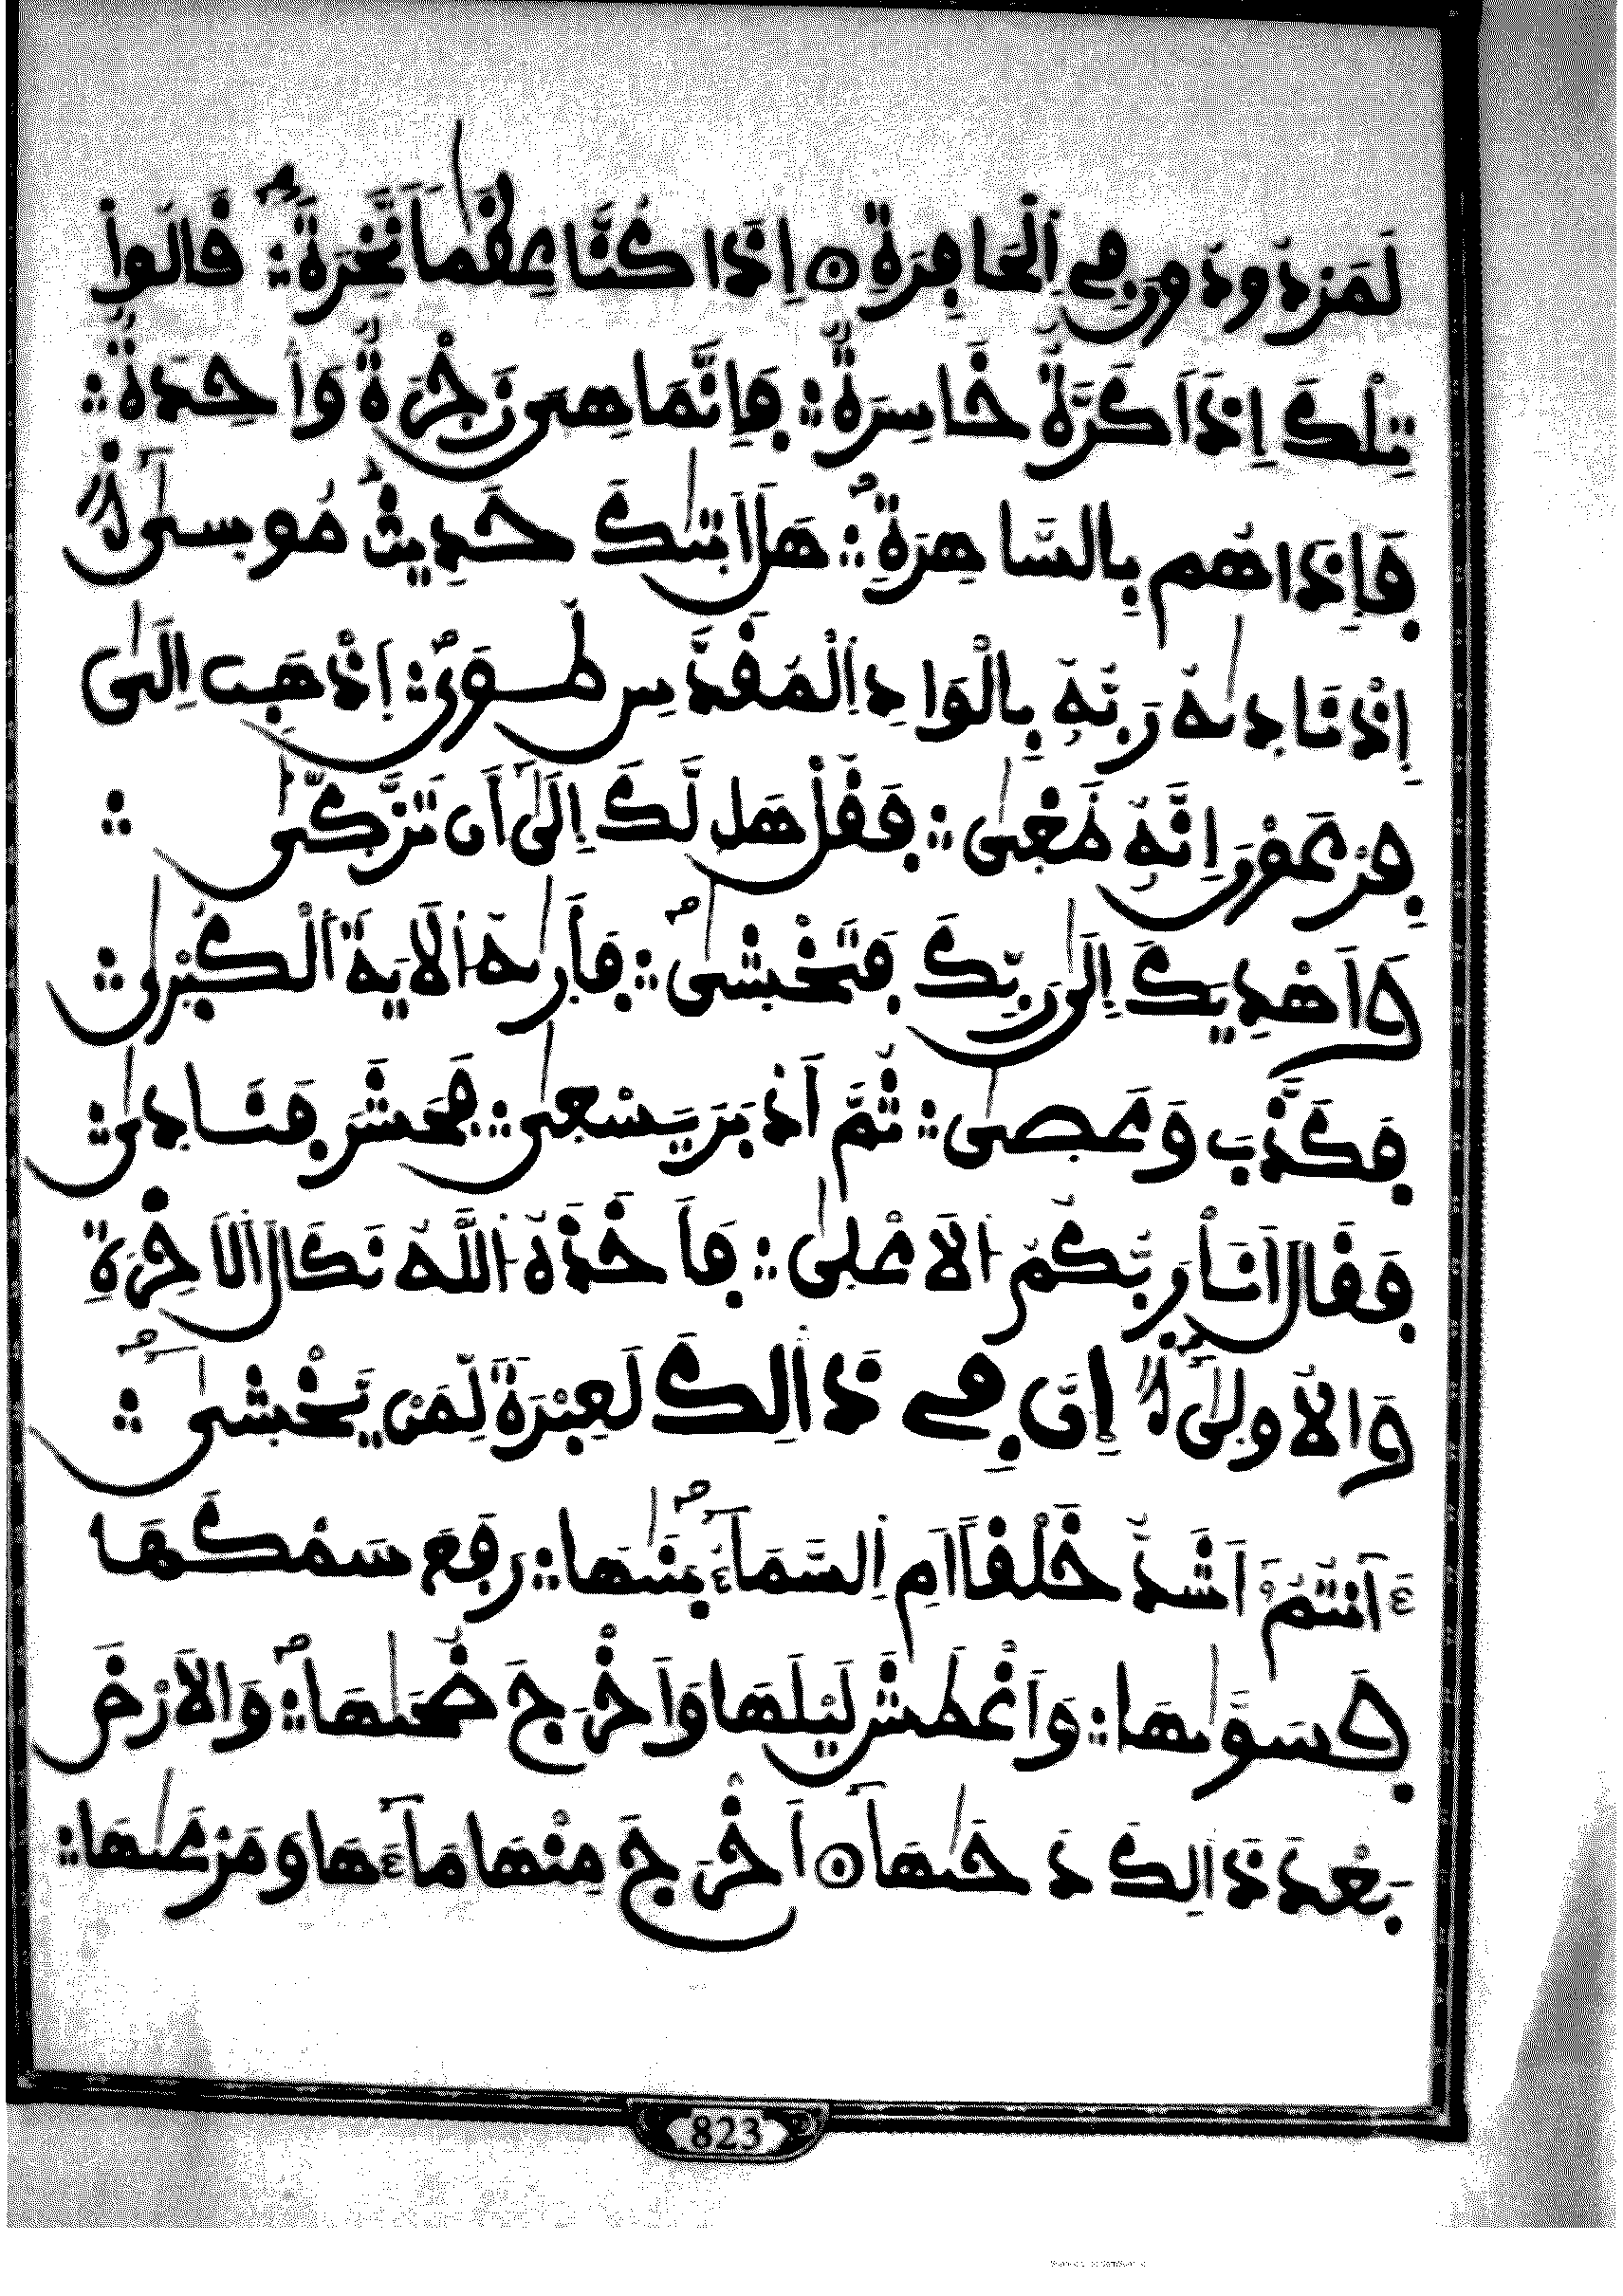 لَمَرْدُودُونَ فِي اِ۬لْحَافِرَةِ ۝ إِذَا كُنَّا عِظَٰماٗ نَّخِرَةٗ ؞ قَالُواْ
تِلْكَ إِذاٗ كَرَّةٌ خَاسِرَةٞ ؞ فَإِنَّمَا هِيَ زَجْرَةٞ وَٰحِدَةٞ ؞
فَإِذَا هُم بِالسَّاهِرَةِ ؞ هَلَ اَت۪يٰكَ حَدِيثُ مُوس۪يٰٓ ۝
إِذْ نَاد۪يٰهُ رَبُّهُۥ بِالْوَادِ اِ۬لْمُقَدَّسِ طُوَي ؞ اَ۪ذْهَبِ اِلَيٰ
فِرْعَوْنَ إِنَّهُۥ طَغ۪يٰ ؞ فَقُلْ هَل لَّكَ إِلَيٰٓ أَن تَزَّكّ۪يٰ ؞
وَأَهْدِيَكَ إِلَيٰ رَبِّكَ فَتَخْش۪يٰ ؞ فَأَر۪يٰهُ اُ۬لَايَةَ اَ۬لْكُبْر۪يٰ ؞
فَكَذَّبَ وَعَص۪يٰ ؞ ثُمَّ أَدْبَرَ يَسْع۪يٰ ؞ فَحَشَرَ فَنَاد۪يٰ ؞
فَقَالَ أَنَا رَبُّكُمُ اُ۬لَاعْل۪يٰ ؞ فَأَخَذَهُ اُ۬للَّهُ نَكَالَ اَ۬لَاخِرَةِ
وَالُاول۪يٰٓ ۝ إِنَّ فِي ذَٰلِكَ لَعِبْرَةٗ لِّمَنْ يَّخْش۪يٰٓ ؞
ءَآنتُمُۥٓ أَشَدُّ خَلْقاً اَمِ اِ۬لسَّمَآءُ بَن۪يٰهَا ؞ رَفَعَ سَمْكَهَا
فَسَوّ۪يٰهَا ؞ وَأَغْطَشَ لَيْلَهَا وَأَخْرَجَ ضُح۪يٰهَا ؞ وَالَارْضَ
بَعْدَ ذَٰلِكَ دَح۪يٰهَآ ۝ أَخْرَجَ مِنْهَا مَآءَهَا وَمَرْع۪يٰهَا ؞
823